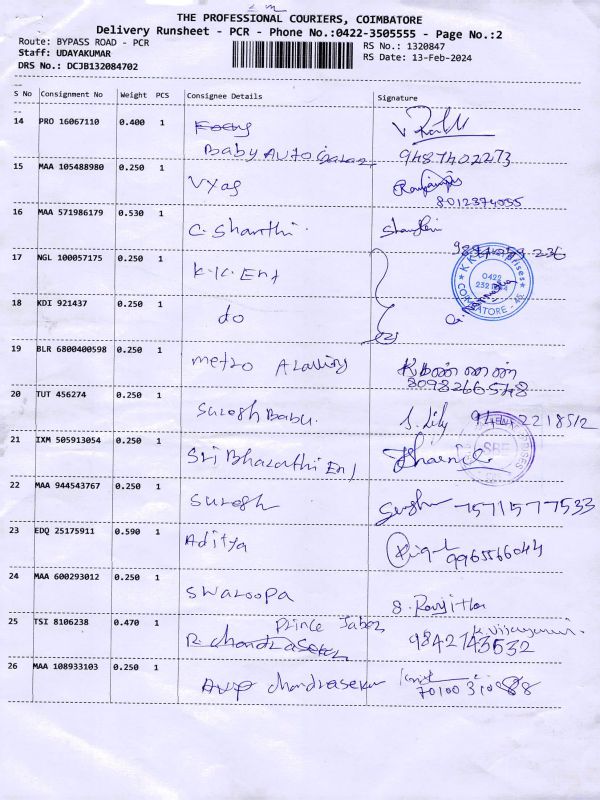 THE PROFESSIONAL COURIERS, COIMBATORE
Delivery Runsheet - PCR - Phone No.:0422-3505555 - Page No.:2
Route: BYPASS ROAD - PCR
RS No.: 1320847
Staff: UDAYAKUMAR
RS Date: 13-Feb-2024
DRS No.: DCJB132084702
S No Consignment No Weight PCS Consignee Details Signature
14 PRO 16067110 0.400 1
Baby Auto
9487402273
15 MAA 105488980 0.250 1 Vyas
8012374055
16 MAA 571986179 0.530 1 C. Shanthi. Shanthi
17 NGL 100057175 0.250 1 K.K. Ent
0422
COIMBATORE - 45
18 KDI 921437 0.250 1 do
19 BLR 6800400598 0.250 1 Metro
8098266548
20 TUT 456274 0.250 1 Suresh Babu. S. Lily
21 IXM 505913054 0.250 1 Sri Bharathi Ent
22 MAA 944543767 0.250 1 Suresh 7571577533
23 EDQ 25175911 0.590 1 Aditya 9965566044
24 MAA 600293012 0.250 1 Swaroopa S. Ranjitha
25 TSI 8106238 0.470 1 Prince Jabez
R. Chandrasekar 9842743532
26 MAA 108933103 0.250 1 Chandrasekar